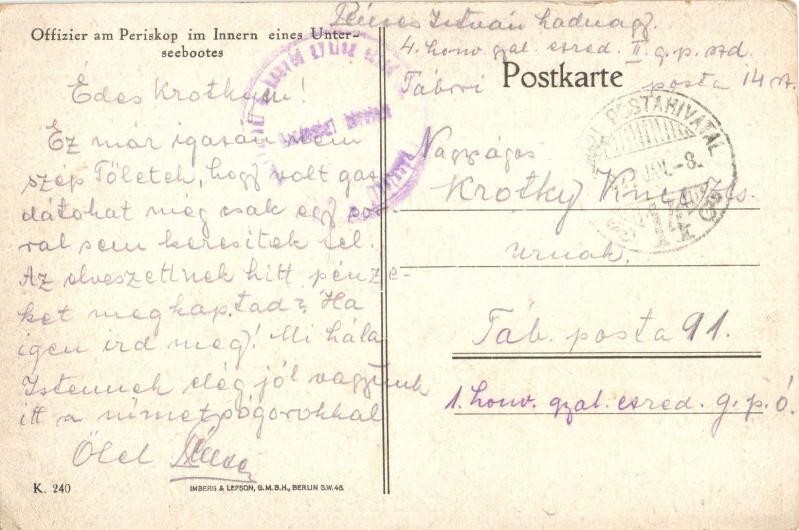 Offizier am Periskop im Innern eines Unter-
seebootes
István hadnagy.
4. honv. gyal. ezred. II. g. p. szd.
Tábori posta 14
Postkarte
Édes Krotkym!
Ez már igazán nem
szép Tőletek, hogy volt gaz
dátokat még csak egy so
ral sem keresitek fel.
Az elveszettnek hitt pénze-
ket megkaptad? Ha
igen ird meg! Mi hála
Istennek elég jól vagyunk
itt a német pógorokkal
Ölel
POSTAHIVATAL
JAN. -8.
Nagyságos
Krotky
urnak.
Táb. posta 91.
1. honv. gyal. ezred. g. p. ó.
K. 240
IMBERG & LEFSON, G.M.B.H., BERLIN S.W. 48.